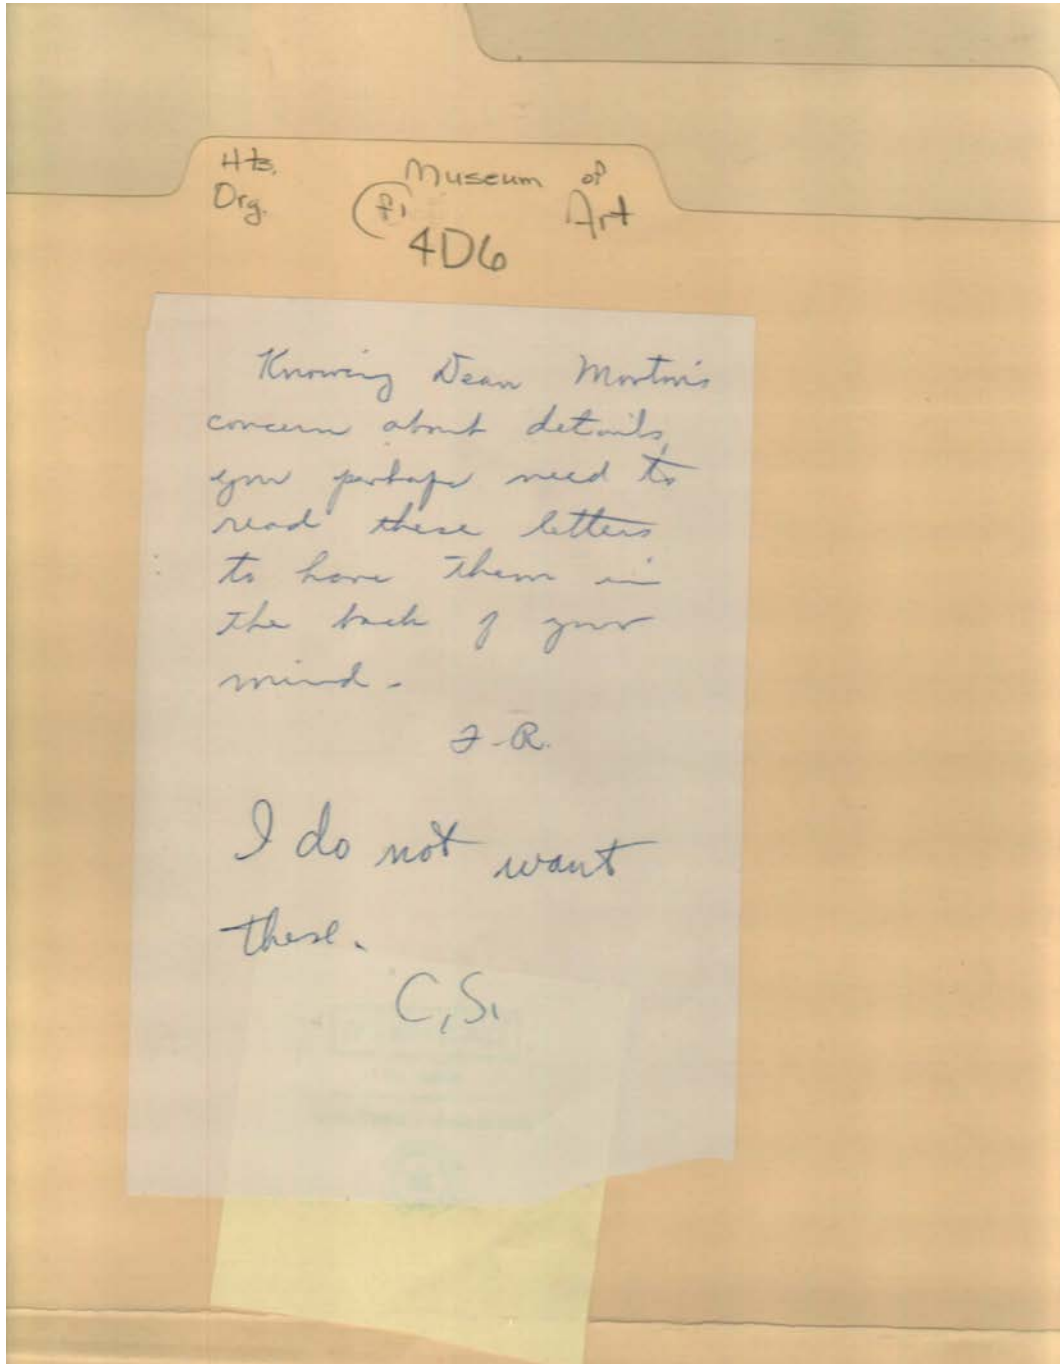 Hts. Museum of
Org. Art
4D6
Knowing Dean Morton's
concern about details,
you perhaps need to
read these letters
to have them in
the back of your
mind.
F.R.
I do not want
these.
C.S.